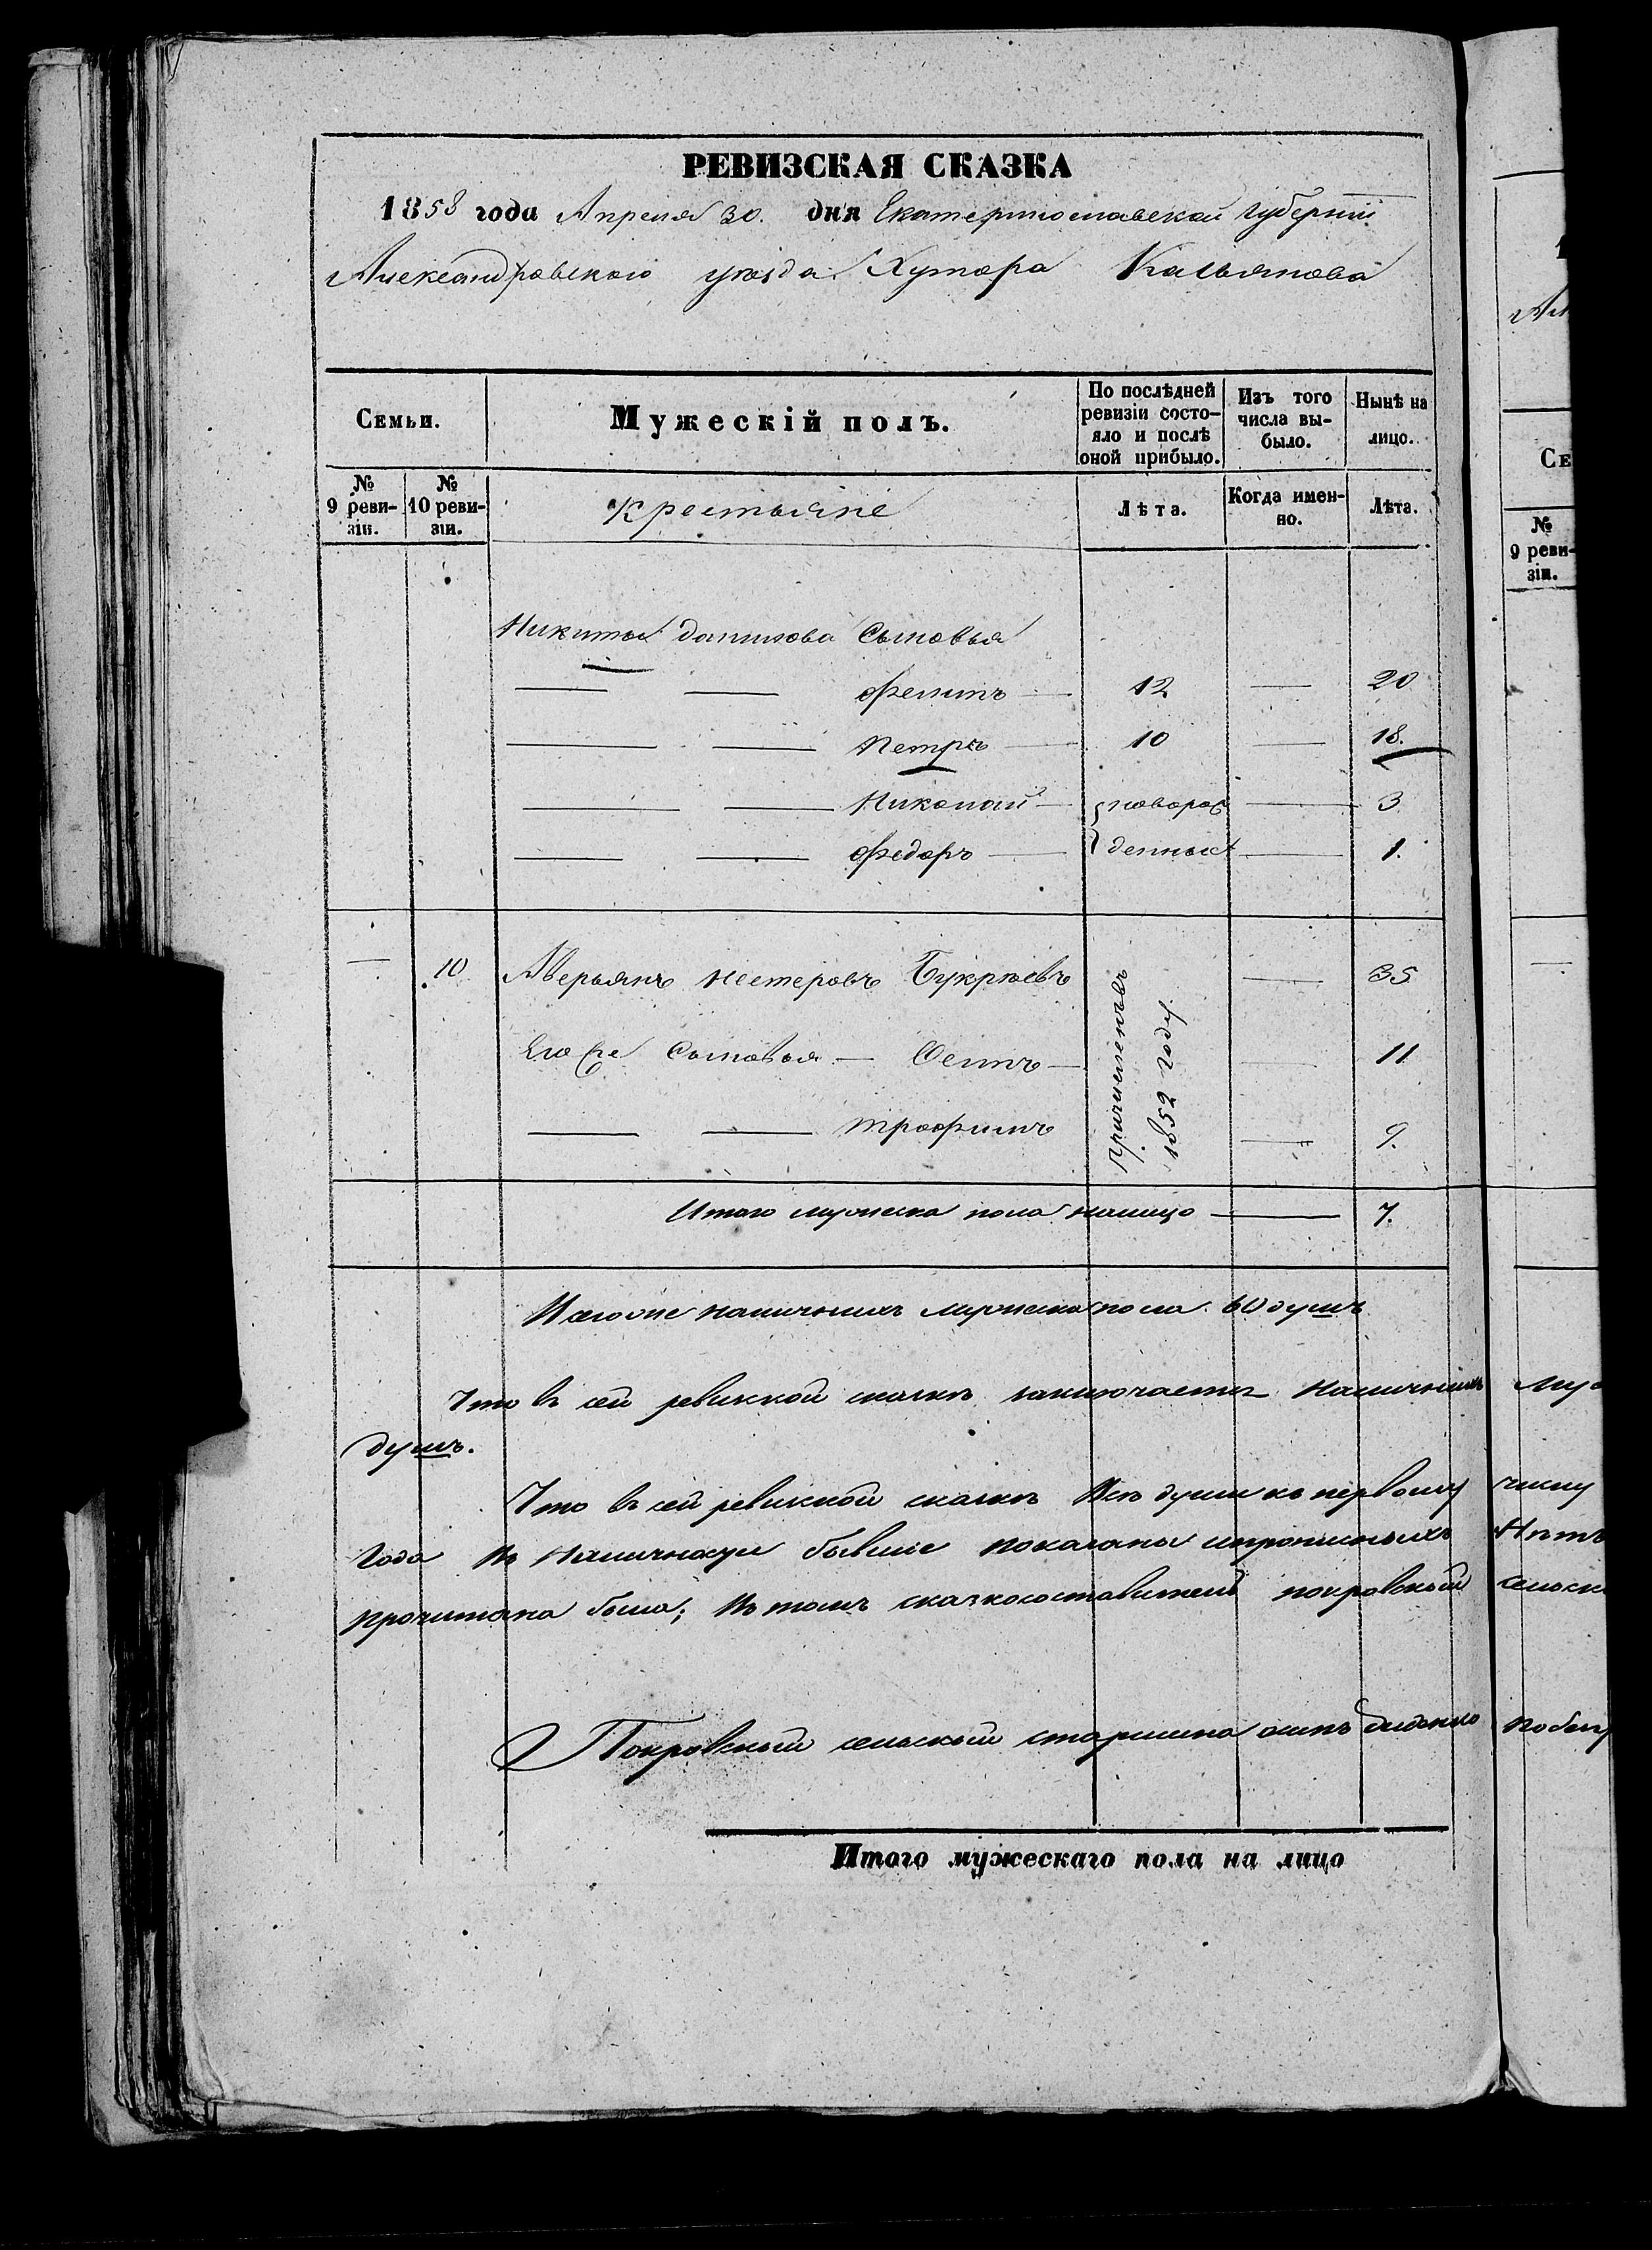 РЕВИЗСКАЯ СКАЗКА
1858 года Апреля 30. дня Екатеринославской губернии
Александровского уезда Хутора Касьянова
Семьи. Мужескій полъ. По послѣдней ревизіи состо- яло и послѣ оной прибыло. Изъ того числа вы- было. Нынѣ на лицо.
№ 9 реви- зіи. № 10 реви- зіи. Крестьяне Лѣта. Когда имен- но. Лѣта.
Никиты Данилова Сыновья
— — Филипъ — 12 — 20
— — Петръ — 10 — 18.
— — Николай — новорож — 3
— — Федоръ — денные — 1.
— 10 Аверьянъ Нестеровъ Букрѣевъ — 35
Его же Сыновья — Осипъ — 11
— — Трофимъ — 9.
причисленъ
1852 году
Итого мужеска пола налицо — 7.
Всего же наличныхъ мужеска пола 60 душъ
Что въ сей ревизкой сказкѣ заключается Наличныхъ
душъ.
Что въ сей ревизкой сказкѣ Всѣ души къ первому числу
Года въ Наличности бывшие показаны и прописныхъ Нѣтъ
прочитана была; въ томъ сказкосоставитель покровский
Покровский сельский старшина
Итого мужескаго пола на лицо
Се
№
9 реви-
зіи.